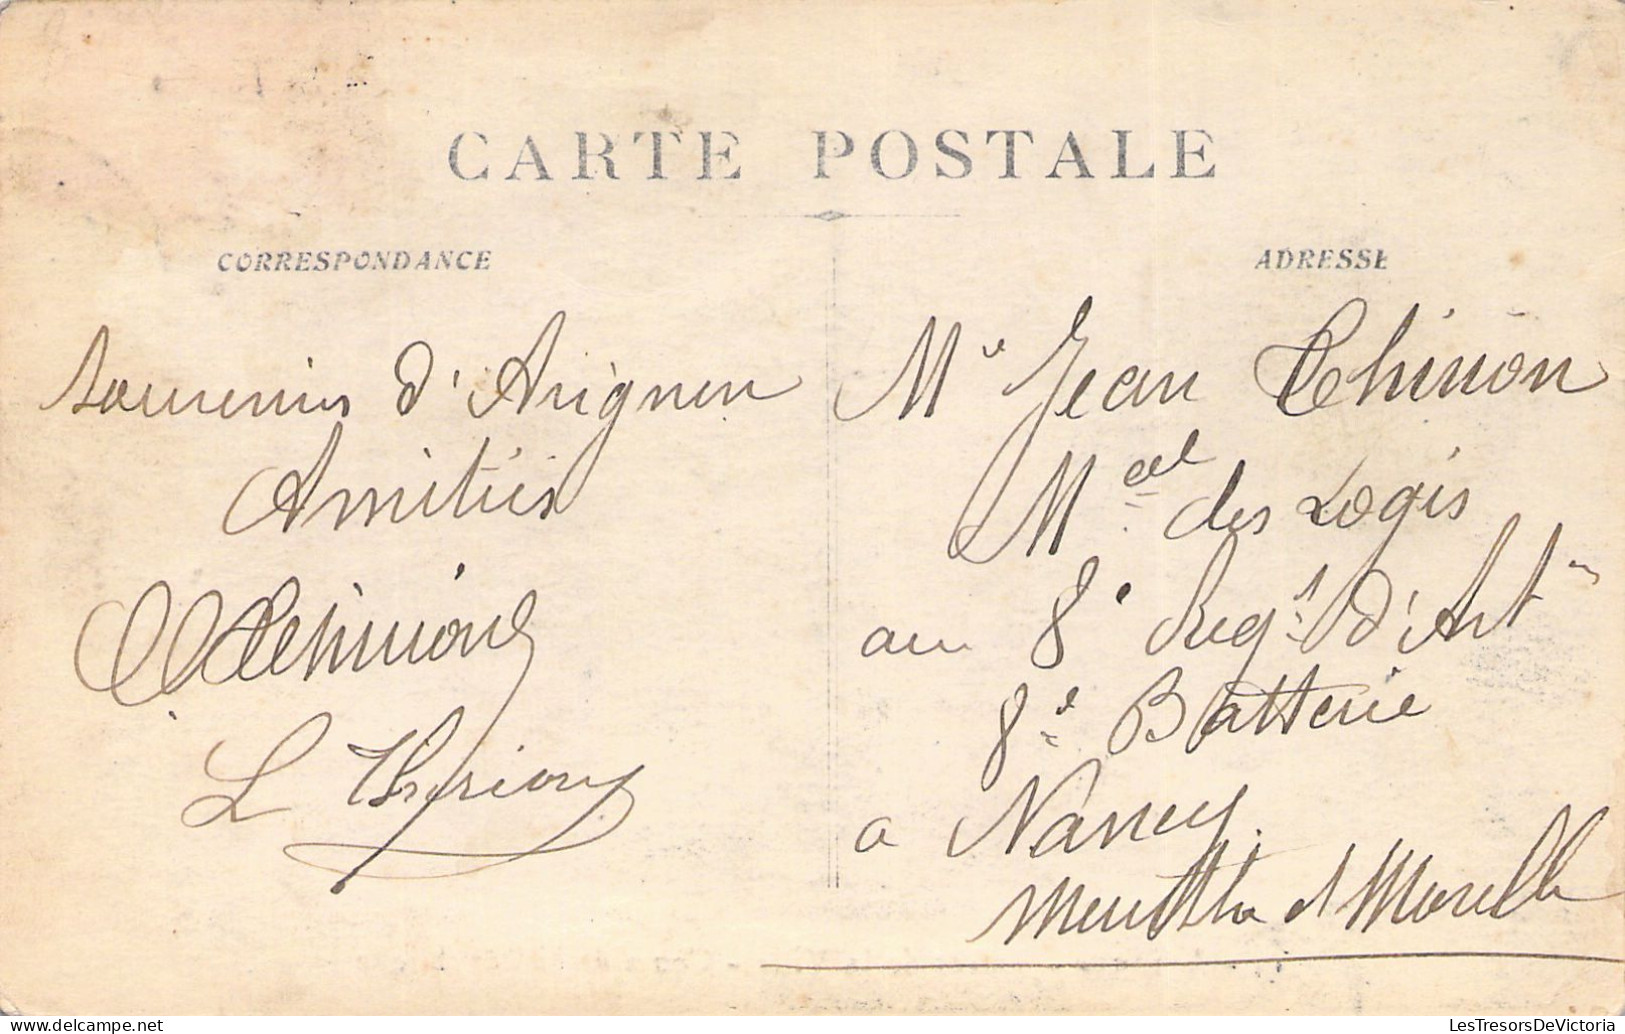 CARTE POSTALE
CORRESPONDANCE
Souvenirs d'Avignon
Amitiés
L
ADRESSE
Mr Jean
Mal des Logis
au 8e Regt d'Artie
8e Batterie
a Nancy
Meurthe et Moselle
LesTresorsDeVictoria